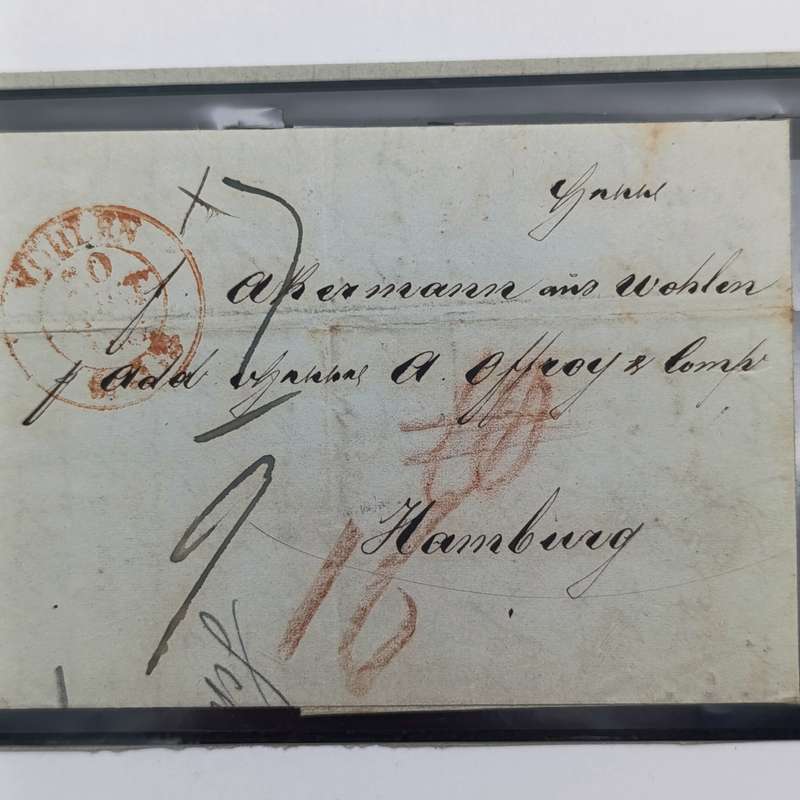 WOHLEN
Herrn
J. Akermann aus Wohlen
p add Herren A. Offroy & Comp
Hamburg
9
16